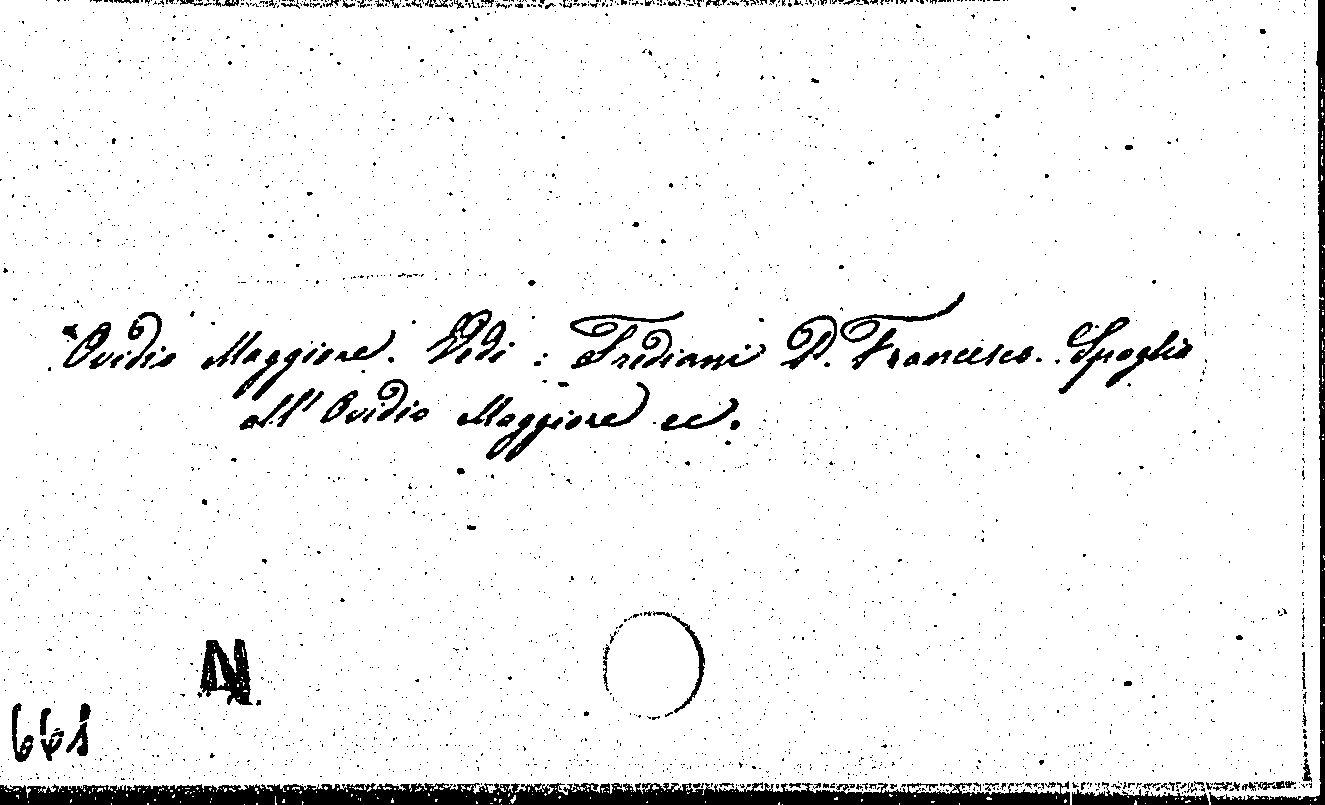 "Ovidio Maggiore. Vedi: Frediani P. Francesco. Spoglio
all'Ovidio Maggiore ec.
N
661